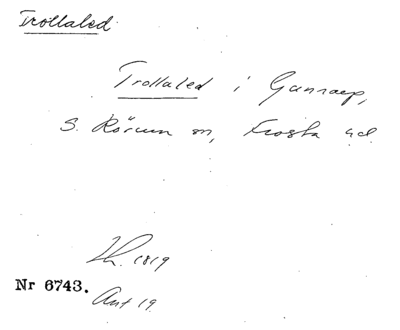 Trollaled
Trollaled i Gunnarp,
S. Rörum sn, Frosta hd.
1819
Nr 6743.
Ant 19.